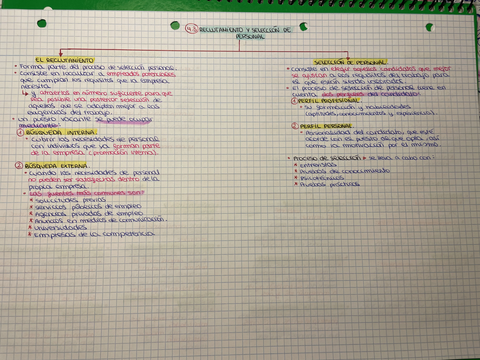 4.3 RECLUTAMIENTO Y SELECCIÓN DE
PERSONAL
EL RECLUTAMIENTO
• Forma parte del proceso de selección personal.
• Consiste en localizar a empleados potenciales
que cumplan los requisitos que la empresa
necesita
↳ y atraerlos en número suficiente para que
sea posible una posterior selección de
aquellos que se adapten mejor a las
exigencias del trabajo.
• Un puesto vacante se puede ocupar
mediante:
① BÚSQUEDA INTERNA:
• Cubrir las necesidades de personal
con individuos que ya forman parte
de la empresa (promoción interna).
② BÚSQUEDA EXTERNA:
• Cuando las necesidades de personal
no pueden ser satisfechas dentro de la
propia empresa.
• Las fuentes más comunes son:
* Solicitudes previas
* Servicios públicos de empleo
* Agencias privadas de empleo
* Anuncios en medios de comunicación
* Universidades
* Empresas de la competencia
SELECCIÓN DE PERSONAL:
• Consiste en elegir aquellos candidatos que mejor
se ajustan a los requisitos del trabajo para
el que están siendo
• El proceso de selección de personal tiene en
cuenta dos perfiles del candidato:
① PERFIL PROFESIONAL
• Su formación y habilidades
(aptitudes, conocimientos y experiencia)
② PERFIL PERSONAL
• Personalidad del candidato, que esté
acorde con el puesto al que opta, así
como la motivación por el mismo
• PROCESO DE SELECCIÓN → se lleva a cabo con:
* Entrevistas
* Pruebas de conocimiento
* Psicotécnicos
* Pruebas prácticas